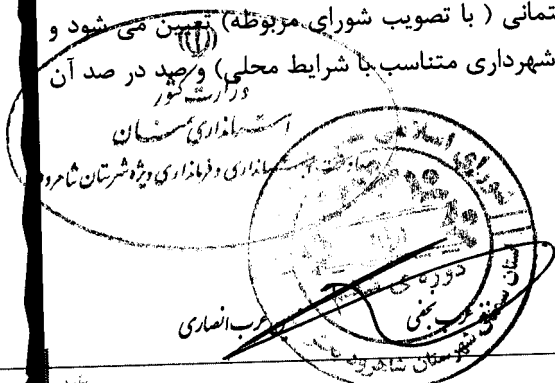 تمانی ( با تصویب شورای مربوطه) تعیین می شود و
شهرداری متناسب با شرایط محلی) وصد در صد آن
وزارت کشور
استانداری سمنان
معاونت استانداری و فرمانداری ویژه شهرستان شاهرود
شورای اسلامی
دوره ی
عرب نجفی
عرب انصاری
استان سمنان شهرستان شاهرود